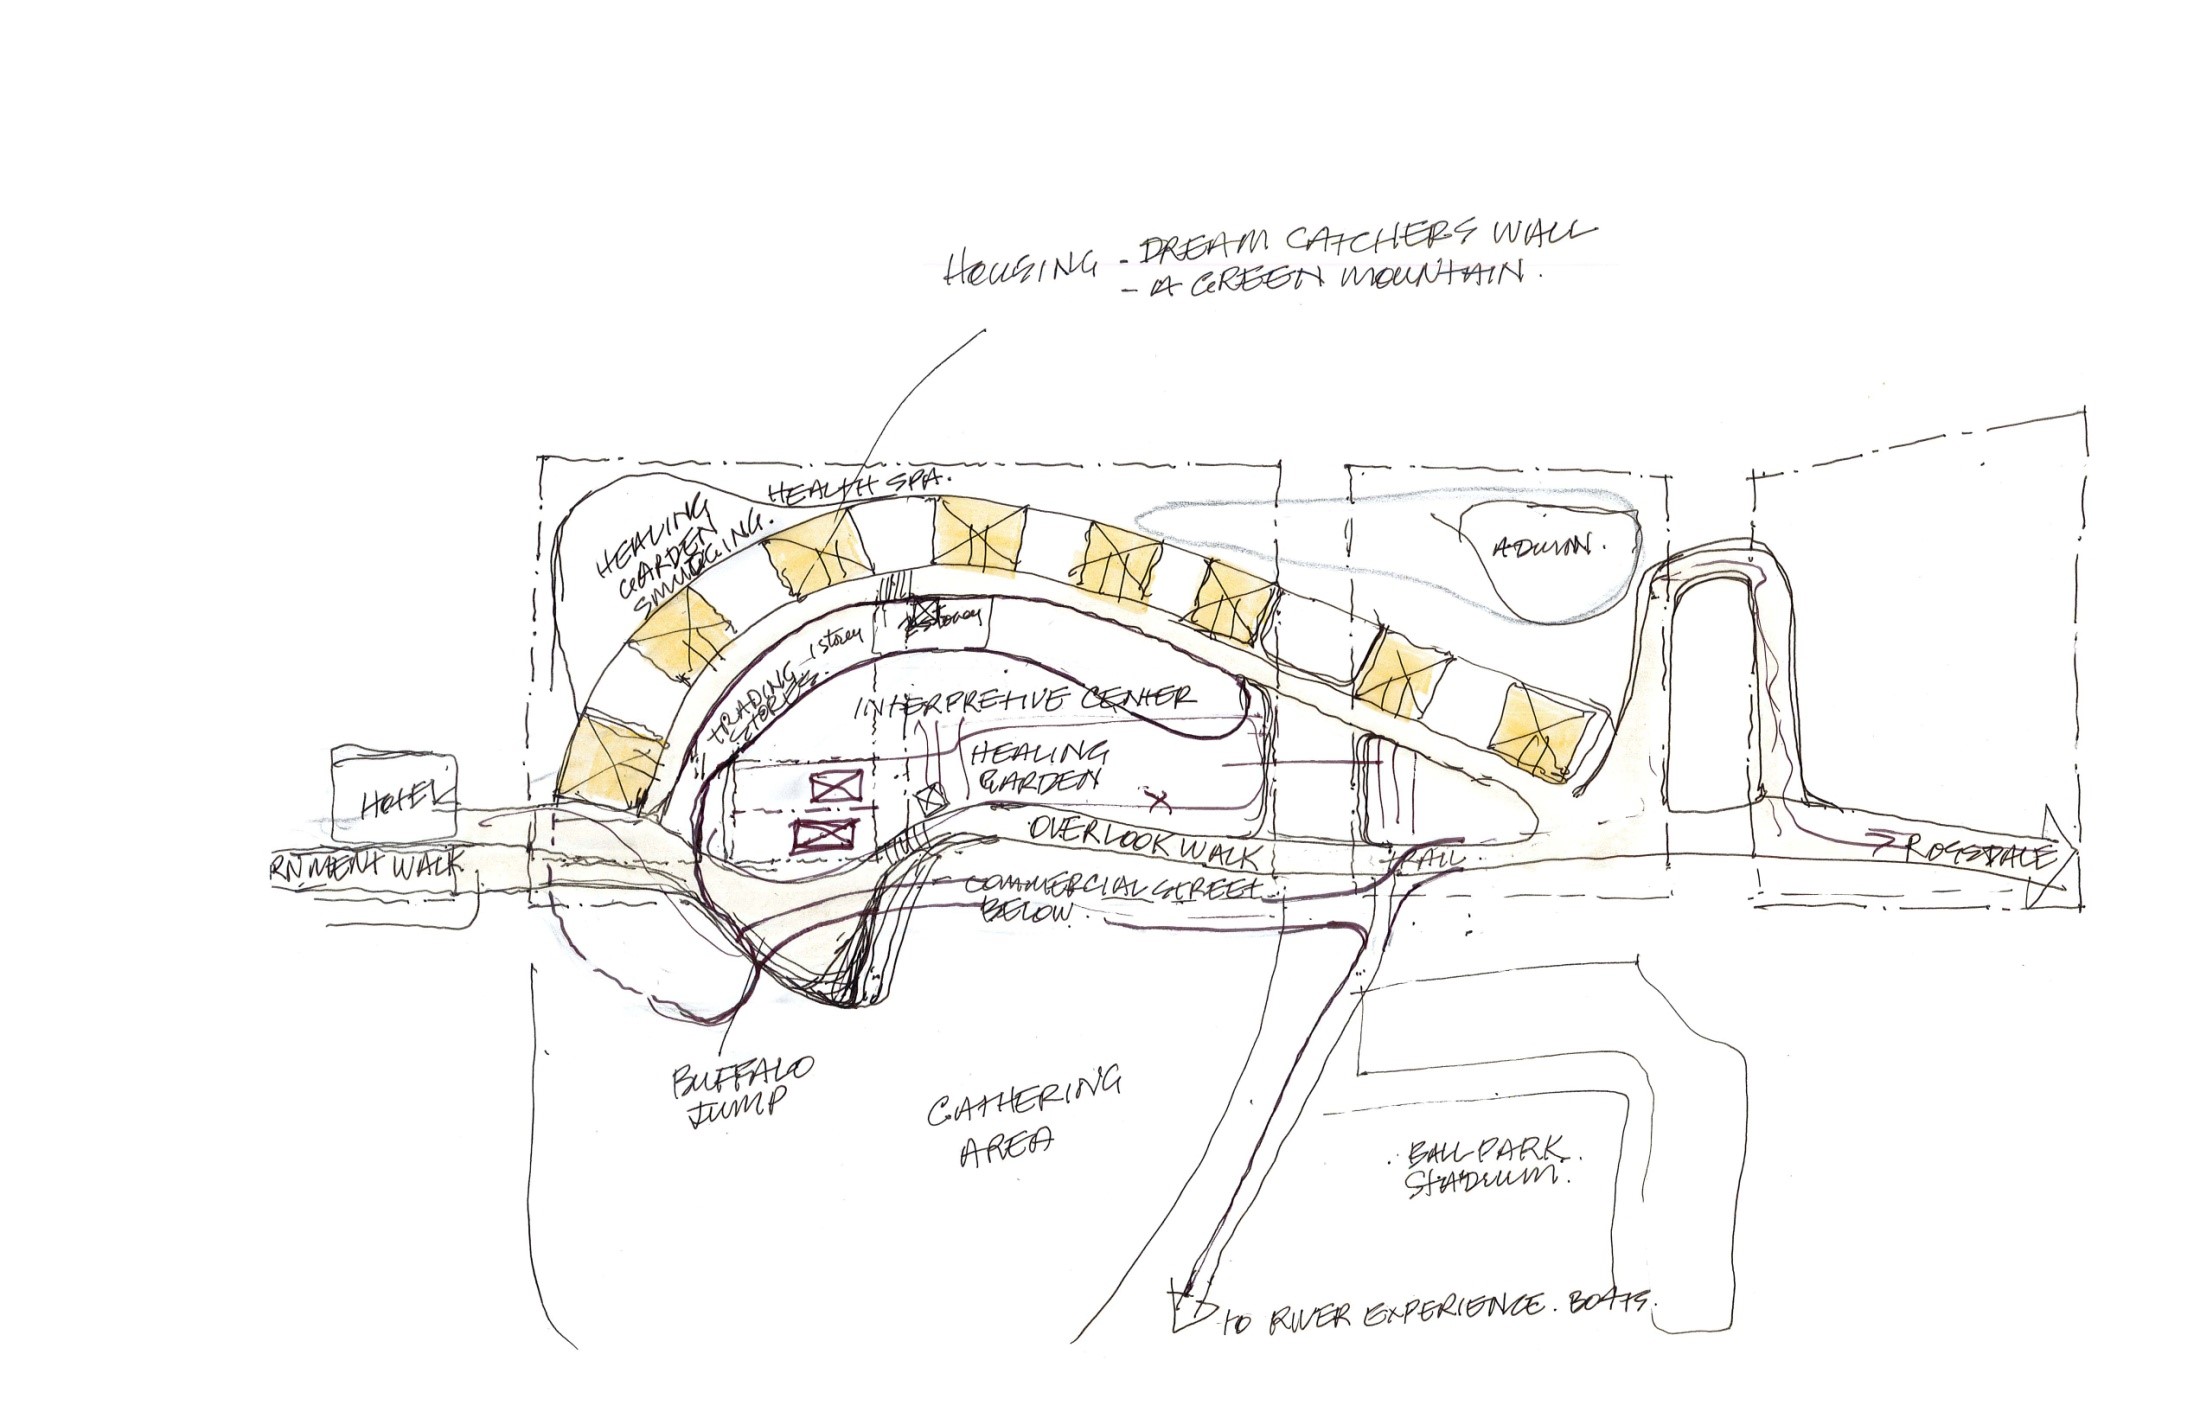 HOUSING - DREAM CATCHERS WALL
- A GREEN MOUNTAIN.
HEALTH SPA.
HEALING
GARDEN
SMUDGING.
ADMIN.
1 storey
2 storey
TRADING
STORES.
INTERPRETIVE CENTER
HEALING
GARDEN
HOTEL
OVERLOOK WALK
RNMENT WALK
RAIL.
ROSSDALE
COMMERCIAL STREET
BELOW.
BUFFALO
JUMP
GATHERING
AREA
BALL PARK
STADIUM.
TO RIVER EXPERIENCE. BOATS.